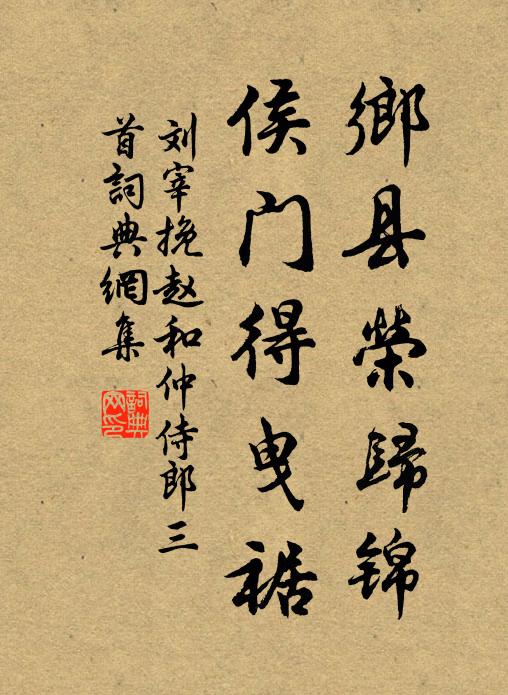 鄉县榮歸锦
侯门得曳裾
刘宰挽赵和仲侍郎三
首詞典網集
詞典网印